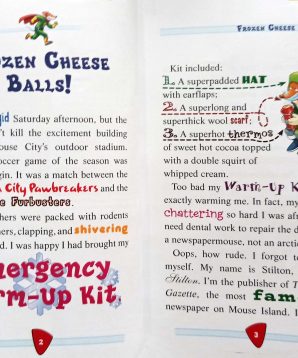 OZEN CHEESE
BALLS!
Saturday afternoon, but the
't kill the excitement building
ouse City's outdoor stadium.
occer game of the season was
gin. It was a match between the
City Pawbreakers and the
e Furbusters.
chers were packed with rodents
ners, clapping, and shivering
d. I was happy I had brought my
mergency
rm-Up Kit.
2
FROZEN CHEESE
Kit included:
1. A superpadded HAT
with earflaps;
2. A superlong and
superthick wool scarf;
3. A superhot thermos
of sweet hot cocoa topped
with a double squirt of
whipped cream.
Too bad my Warm-Up K
exactly warming me. In fact, my
chattering so hard I was af
need dental work to repair the d
a newspapermouse, not an arcti
Oops, how rude. I forgot to
myself. My name is Stilton,
Stilton. I'm the publisher of T
Gazette, the most fam
newspaper on Mouse Island. I
3